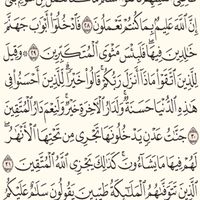 إِنَّ ٱللَّهَ عَلِيمٌۢ بِمَا كُنتُمْ تَعْمَلُونَ ٢٨ فَٱدْخُلُوٓا۟ أَبْوَٰبَ جَهَنَّمَ
خَٰلِدِينَ فِيهَا ۖ فَلَبِئْسَ مَثْوَى ٱلْمُتَكَبِّرِينَ ٢٩ ۞ وَقِيلَ
لِلَّذِينَ ٱتَّقَوْا۟ مَاذَآ أَنزَلَ رَبُّكُمْ ۚ قَالُوا۟ خَيْرًا ۗ لِّلَّذِينَ أَحْسَنُوا۟ فِى
هَٰذِهِ ٱلدُّنْيَا حَسَنَةٌ ۚ وَلَدَارُ ٱلْءَاخِرَةِ خَيْرٌ ۚ وَلَنِعْمَ دَارُ ٱلْمُتَّقِينَ
٣٠ جَنَّٰتُ عَدْنٍ يَدْخُلُونَهَا تَجْرِى مِن تَحْتِهَا ٱلْأَنْهَٰرُ ۖ
لَهُمْ فِيهَا مَا يَشَآءُونَ ۚ كَذَٰلِكَ يَجْزِى ٱللَّهُ ٱلْمُتَّقِينَ ٣١
ٱلَّذِينَ تَتَوَفَّىٰهُمُ ٱلْمَلَٰٓئِكَةُ طَيِّبِينَ ۙ يَقُولُونَ سَلَٰمٌ عَلَيْكُمُ